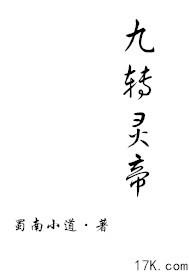 九转灵帝
蜀南小道·著
17K.com